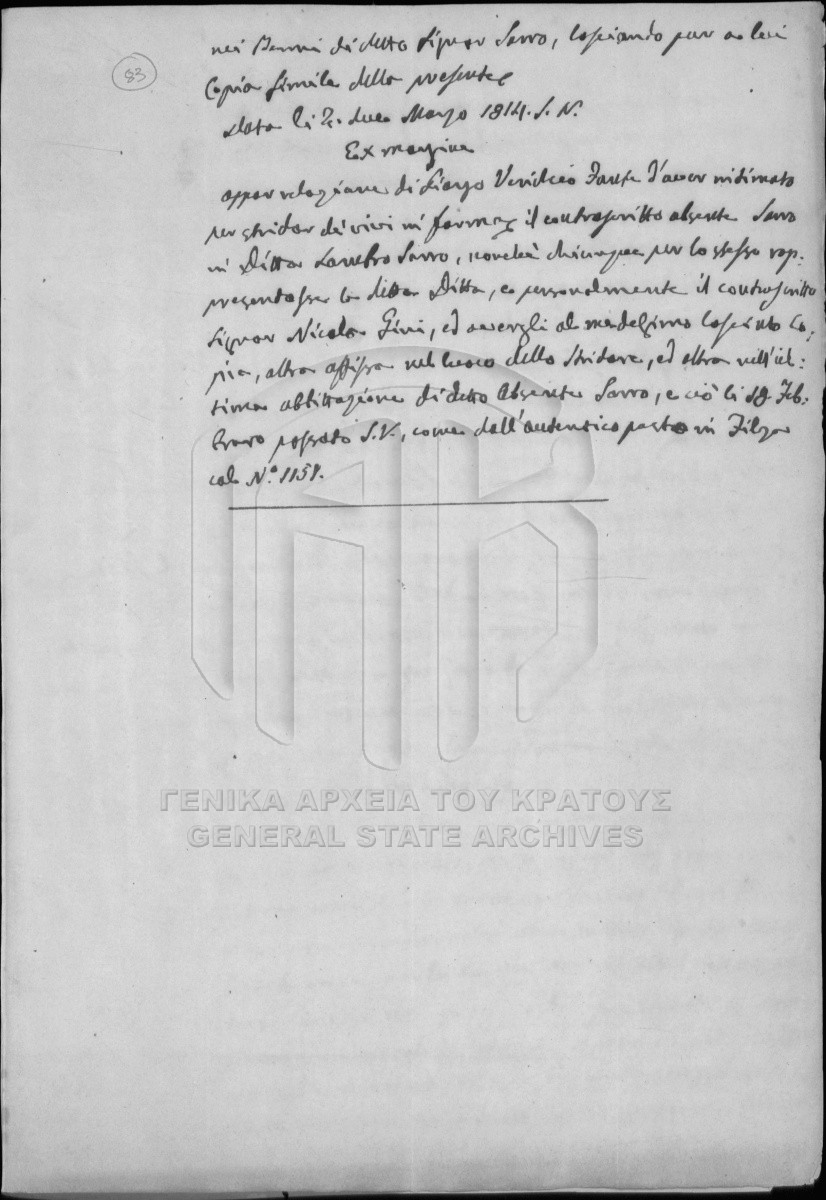 83
nei Benni di detto Signor Sarro, lasciando pur a lui
Copia simile della presente
Data li 2. due Marzo 1814. S. N.
Ex margine
appar relazione di Giorgo Fante d'aver intimato
per stridor di vivi in forma il controscritto absente Sarro
in Ditta Sarro, nonché chiunque per lo stesso rap:
presentasse la detta Ditta, e personalmente il controscritto
Signor Nicola Gini, ed avergli al medesimo lasciato Co:
pia, altra affissa nel luoco dello Stridore, ed altra nell'ul:
tima abbittazione di detto Absente Sarro, e ciò li Feb:
braro passato S. V., come dall'autentico posta in Filza
al N.º 1151.
ΓΕΝΙΚΑ ΑΡΧΕΙΑ ΤΟΥ ΚΡΑΤΟΥΣ
GENERAL STATE ARCHIVES